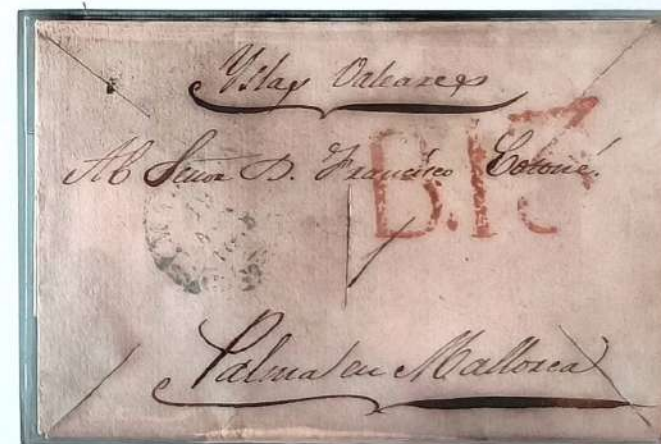 Yslas Valeares
Al Señor D. Francisco
B.13
Palma en Mallorca